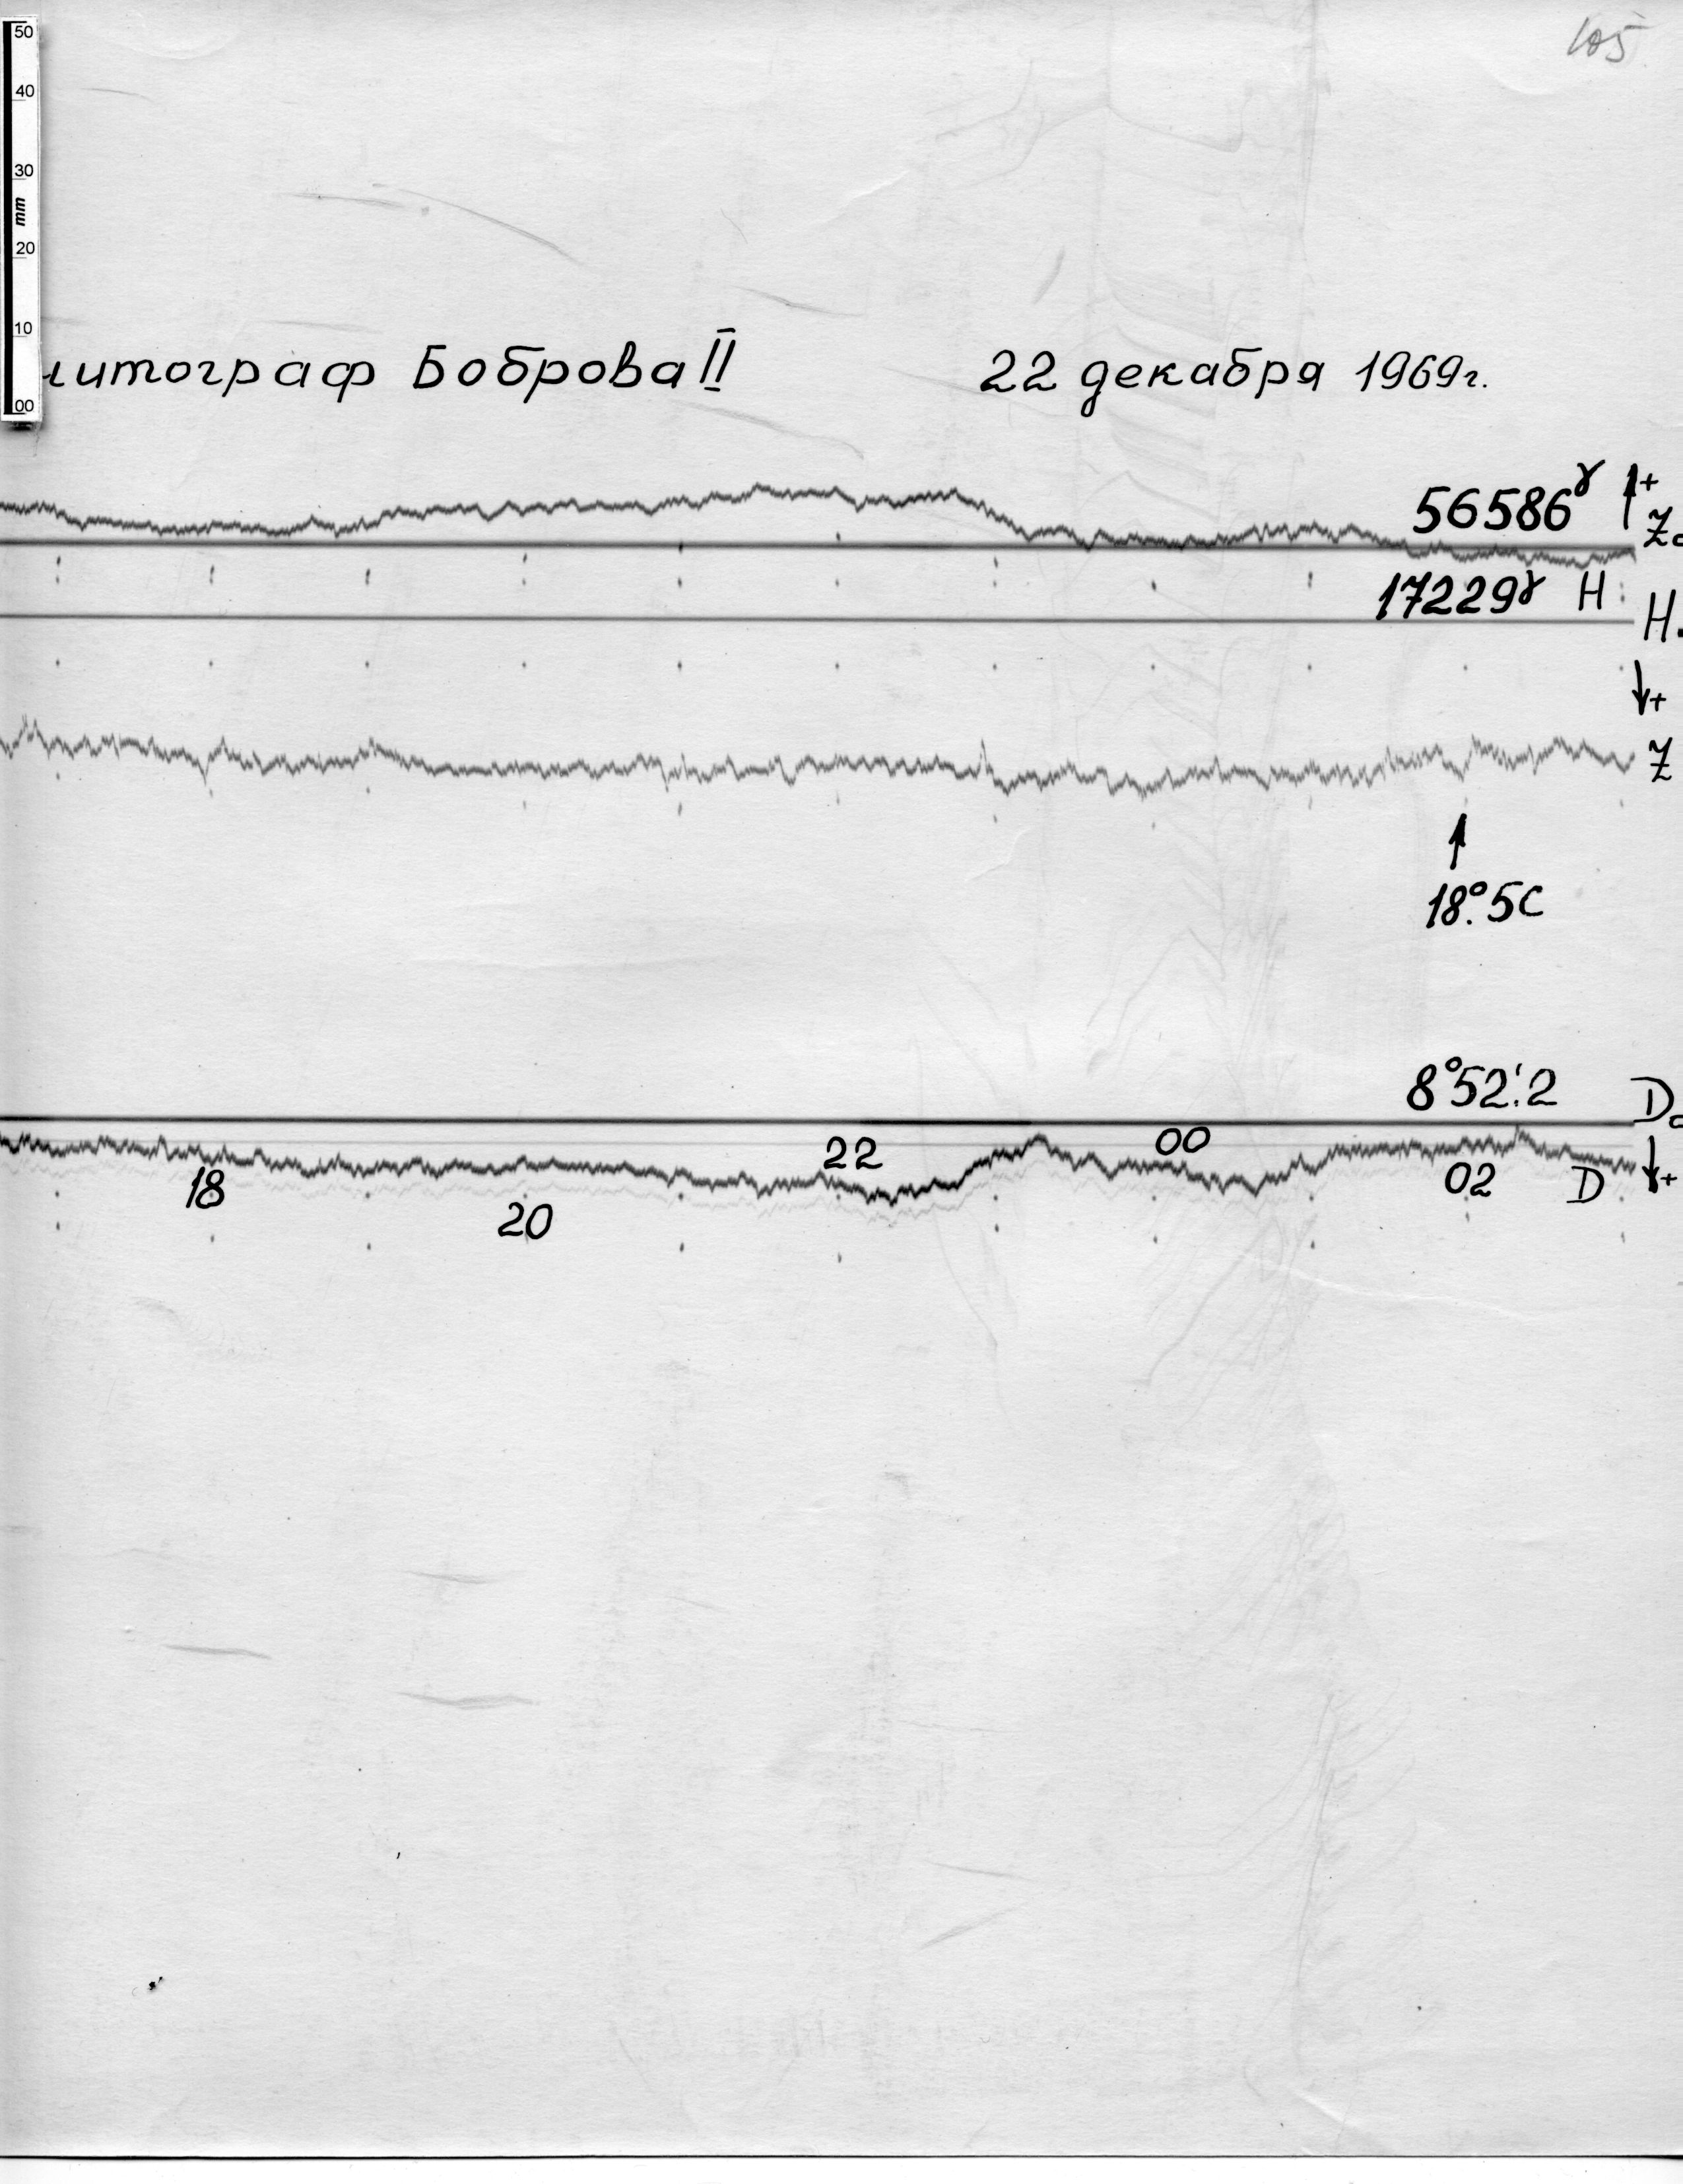 105
50
40
30
mm
20
10
00
литограф Боброва II 22 декабря 1969г.
56586γ + Z₀
17229γ H H₀
+
Z
18°.5C
8°52'.2 D₀
22 00
18 02 D +
20